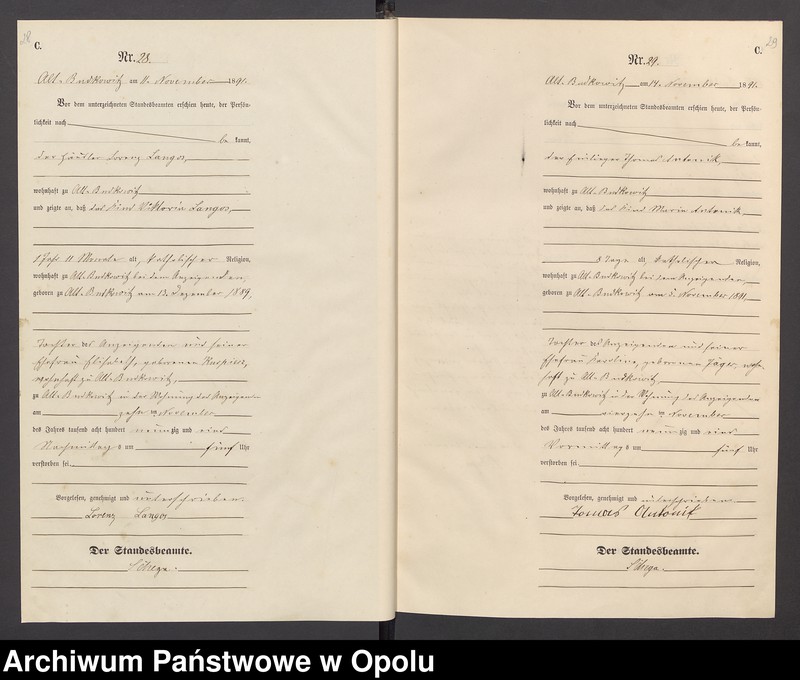 28
C.
Nr. 28.
Alt-Budkowitz am 11. November 1891.
Vor dem unterzeichneten Standesbeamten erschien heute, der Persön-
lichkeit nach
be kannt,
der Häusler Lorenz Langos,
wohnhaft zu Alt-Budkowitz
und zeigte an, daß das Kind Viktoria Langos,
1 Jahr 11 Monate alt, katholischer Religion,
wohnhaft zu Alt-Budkowitz bei dem Anzeigenden,
geboren zu Alt-Budkowitz am 13. Dezember 1889,
Tochter des Anzeigenden und seiner
Ehefrau Elisabeth, geborenen
wohnhaft zu Alt-Budkowitz,
zu Alt-Budkowitz in der Wohnung des Anzeigenden
am zehn ten November
des Jahres tausend acht hundert neunzig und eins
Nachmittags um fünf Uhr
verstorben sei.
Vorgelesen, genehmigt und unterschrieben.
Lorenz Langos
Der Standesbeamte.
29
C.
Nr. 29.
Alt-Budkowitz am 14. November 1891.
Vor dem unterzeichneten Standesbeamten erschien heute, der Persön-
lichkeit nach
be kannt,
der Einlieger Thomas Antonik,
wohnhaft zu Alt-Budkowitz
und zeigte an, daß das Kind Maria Antonik,
8 Tage alt, katholischer Religion,
wohnhaft zu Alt-Budkowitz bei dem Anzeigenden,
geboren zu Alt-Budkowitz am 5. November 1891,
Tochter des Anzeigenden und seiner
Ehefrau Karoline, geborenen Jäger, wohn-
haft zu Alt-Budkowitz
zu Alt-Budkowitz in der Wohnung des Anzeigenden
am vierzehn ten November
des Jahres tausend acht hundert neunzig und eins
Vormittags um fünf Uhr
verstorben sei.
Vorgelesen, genehmigt und unterschrieben
Tomas Antonik
Der Standesbeamte.
Archiwum Państwowe w Opolu